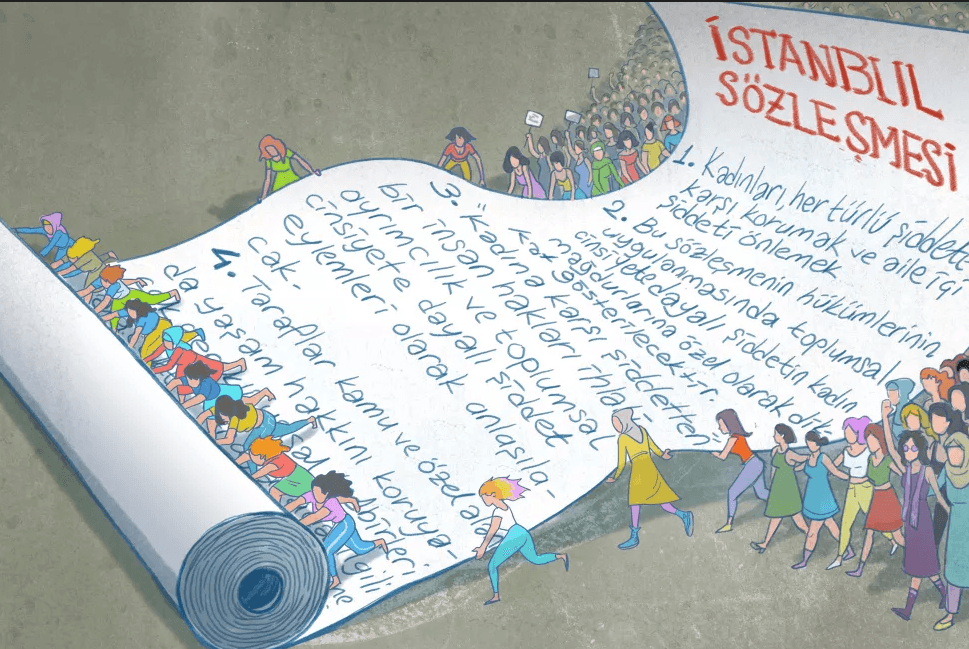 İSTANBUL
SÖZLEŞMESİ
1. Kadınları, her türlü şiddete
karşı korumak ve aile içi
şiddeti önlemek
2. Bu sözleşmenin hükümlerinin
uygulanmasında toplumsal
cinsiyete dayalı şiddetin kadın
mağdurlarına özel olarak dik-
kat gösterilecektir.
3. "Kadına karşı şiddetten
bir insan hakları ihla
ayrımcılık ve toplumsal
cinsiyete dayalı şiddet
eylemleri olarak anlaşıla-
cak.
4. Taraflar kamu ve özel ala
da yaşam hakkını koruya-